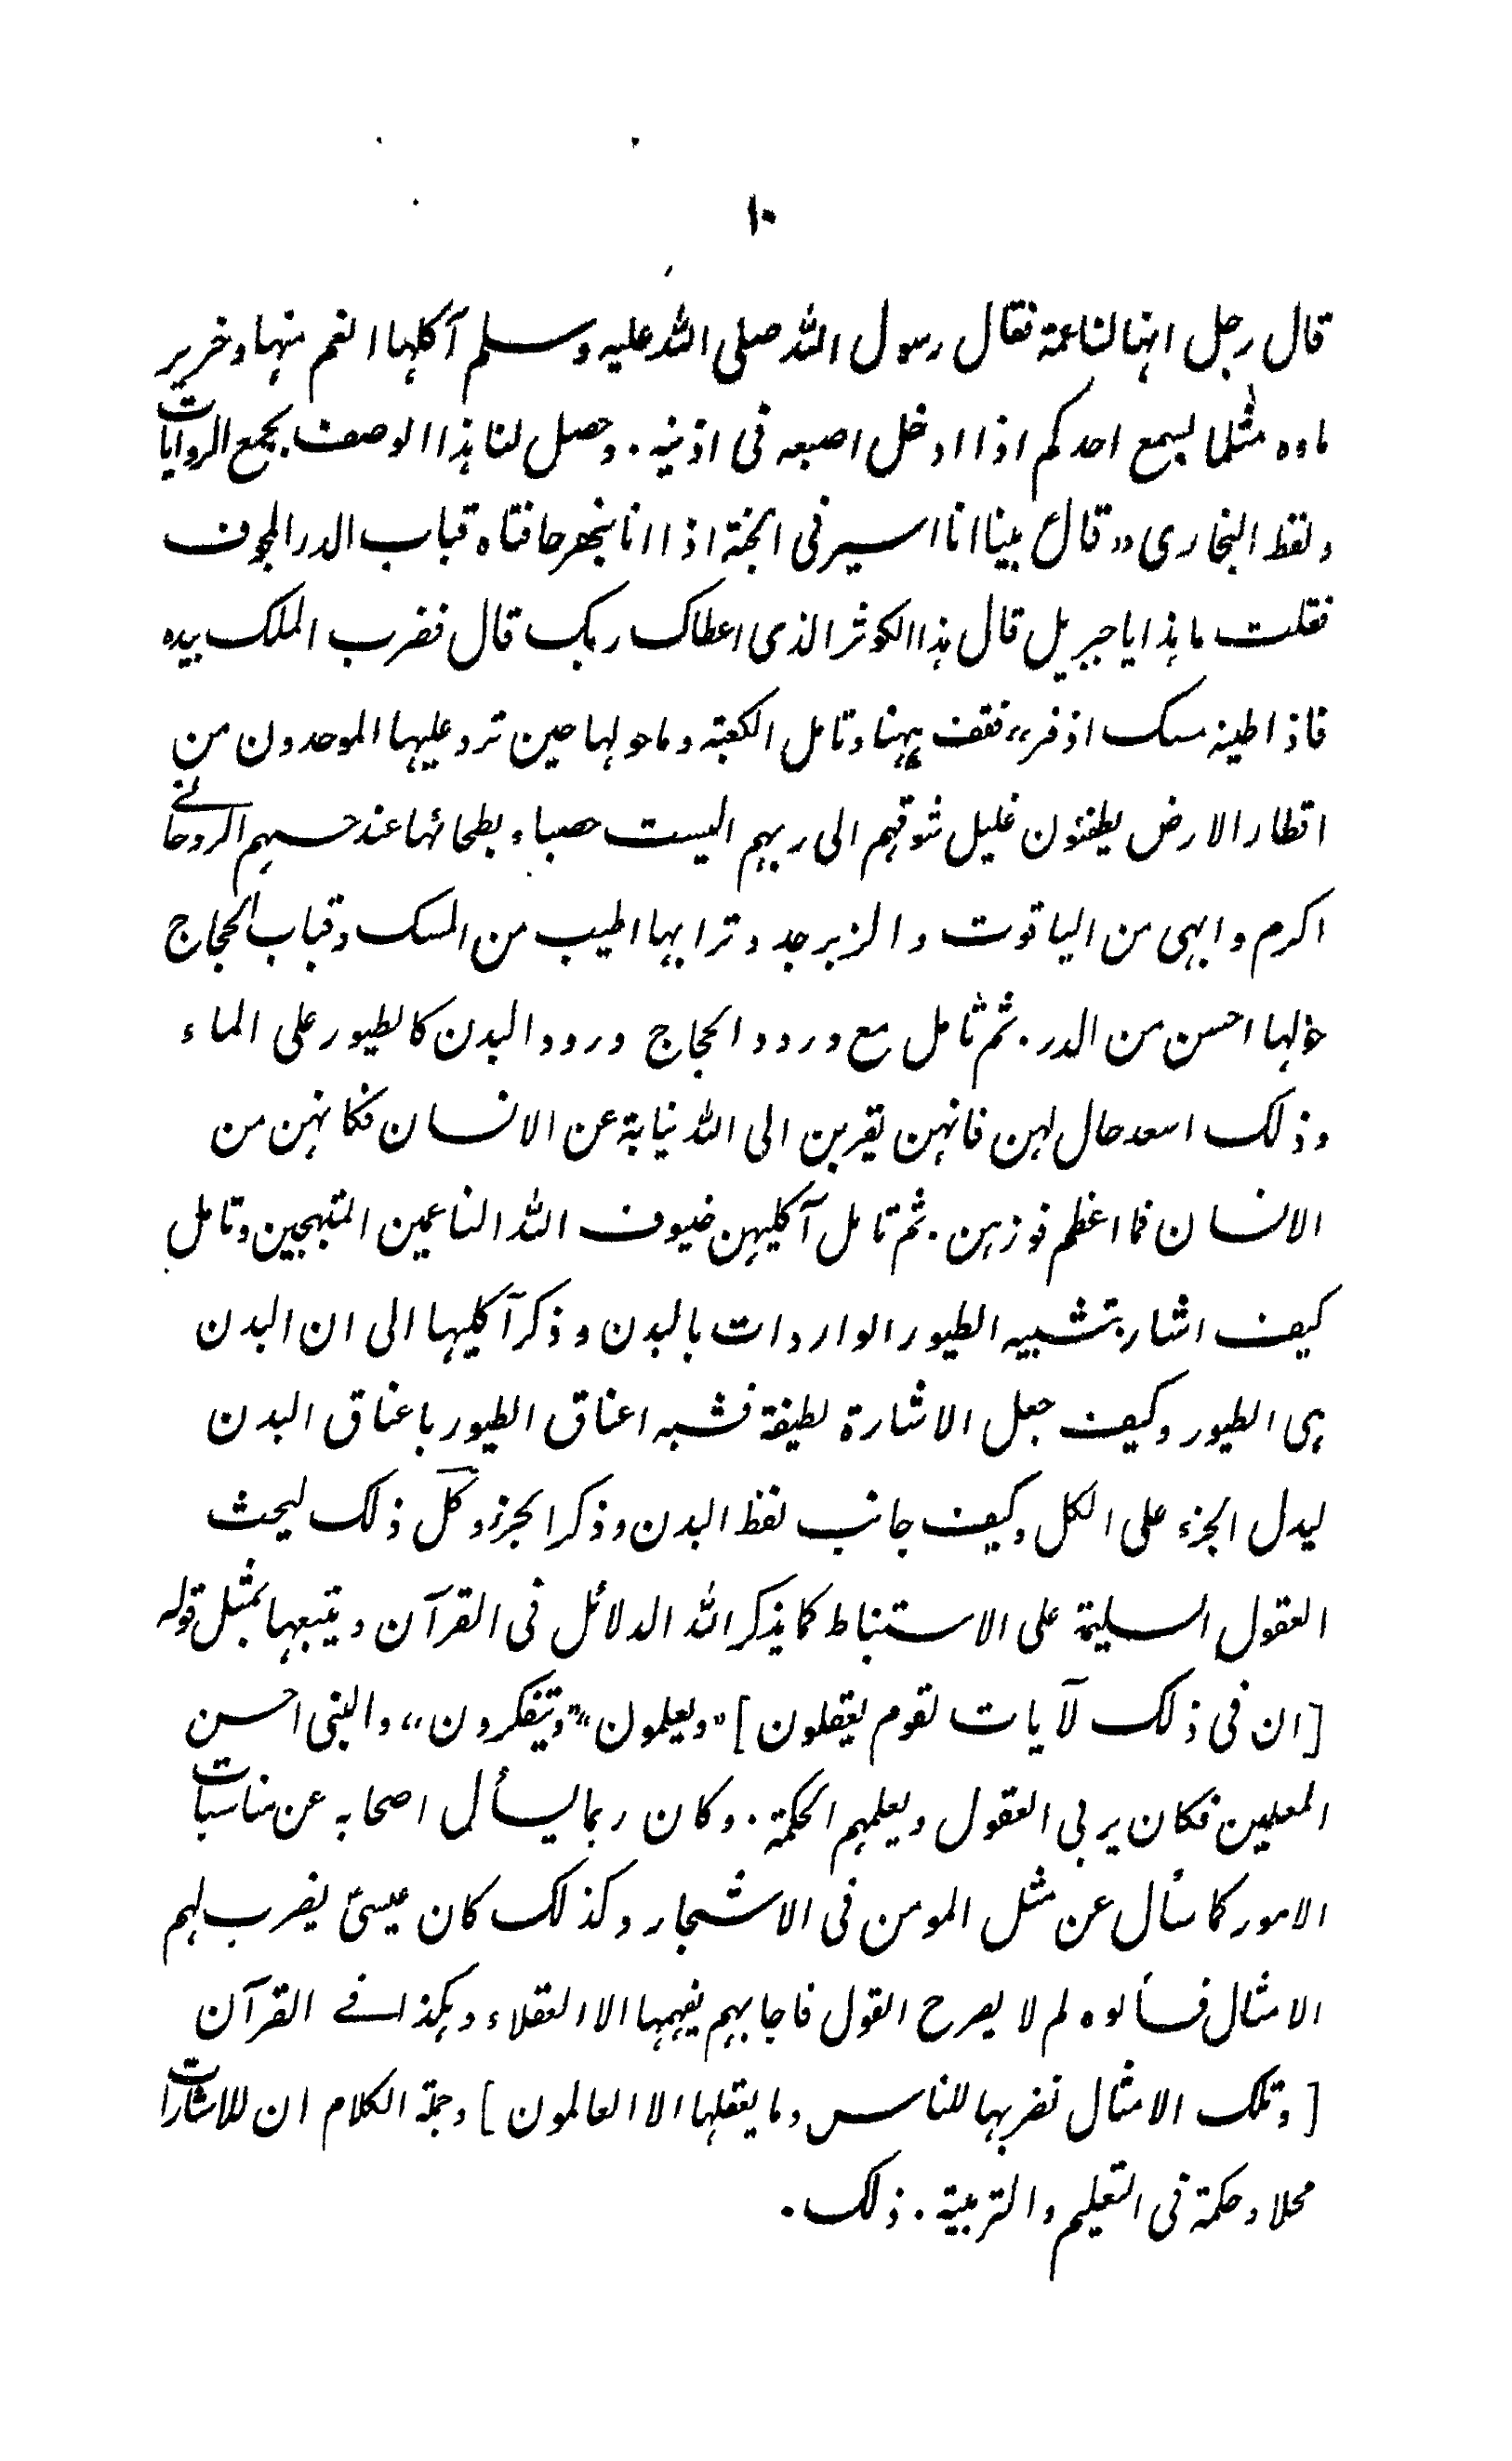 ١٠
قال رجل انها لناعمة فقال رسول الله صلى الله عليه وسلم آكلها انعم منها وخرير
ماءه مثلما يسمع احدكم اذا ادخل اصبعه فى اذنيه. وحصل لنا هذا الوصف بجمع الروايات
ولفظ البخارى «قال بينا انا اسير فى الجنة اذا انا بنهر حافتاه قباب الدر المجوف
فقلت ما هذا يا جبريل قال هذا الكوثر الذى اعطاك ربك قال فضرب الملك بيده
فاذا طينه مسك اذفر» فقف ههنا وتامل الكعبة وما حولها حين ترد عليها الموحدون من
اقطار الارض يطفئون غليل شوقهم الى ربهم اليست حصباء بطحائها عند حسهم الروحانى
اكرم وابهى من الياقوت والزبرجد وترابها اطيب من المسك وقباب الحجاج
حولها احسن من الدر. ثم تامل مع ورود الحجاج ورود البدن كالطيور على الماء
وذلك اسعد حال لهن فانهن يقربن الى الله نيابة عن الانسان فكانهن من
الانسان فما اعظم فوزهن. ثم تامل آكليهن ضيوف الله الناعمين المتبهجين وتامل
كيف اشار بتشبيه الطيور الواردات بالبدن وذكر آكليها الى ان البدن
هى الطيور وكيف جعل الاشارة لطيفة فشبه اعناق الطيور باعناق البدن
ليدل الجزء على الكل وكيف جانب لفظ البدن وذكر الجزر وكل ذلك ليحث
العقول السليمة على الاستنباط كما يذكر الله الدلائل فى القرآن ويتبعها بمثل قوله
[ان فى ذلك لآيات لقوم يعقلون] «ويعلمون» «ويتفكرون» والنبى احسن
المعلمين فكان يربى العقول ويعلمهم الحكمة. وكان ربما يسأل اصحابه عن مناسبات
الامور كما سأل عن مثل المومن فى الاشجار وكذلك كان عيسىؑ يضرب لهم
الامثال فسألوه لم لا يصرح القول فاجابهم يفهمها الا العقلاء وهكذا فى القرآن
[وتلك الامثال نضربها للناس وما يعقلها الا العالمون] وجملة الكلام ان للاشارات
محلا وحكمة فى التعليم والتربية. ذلك.